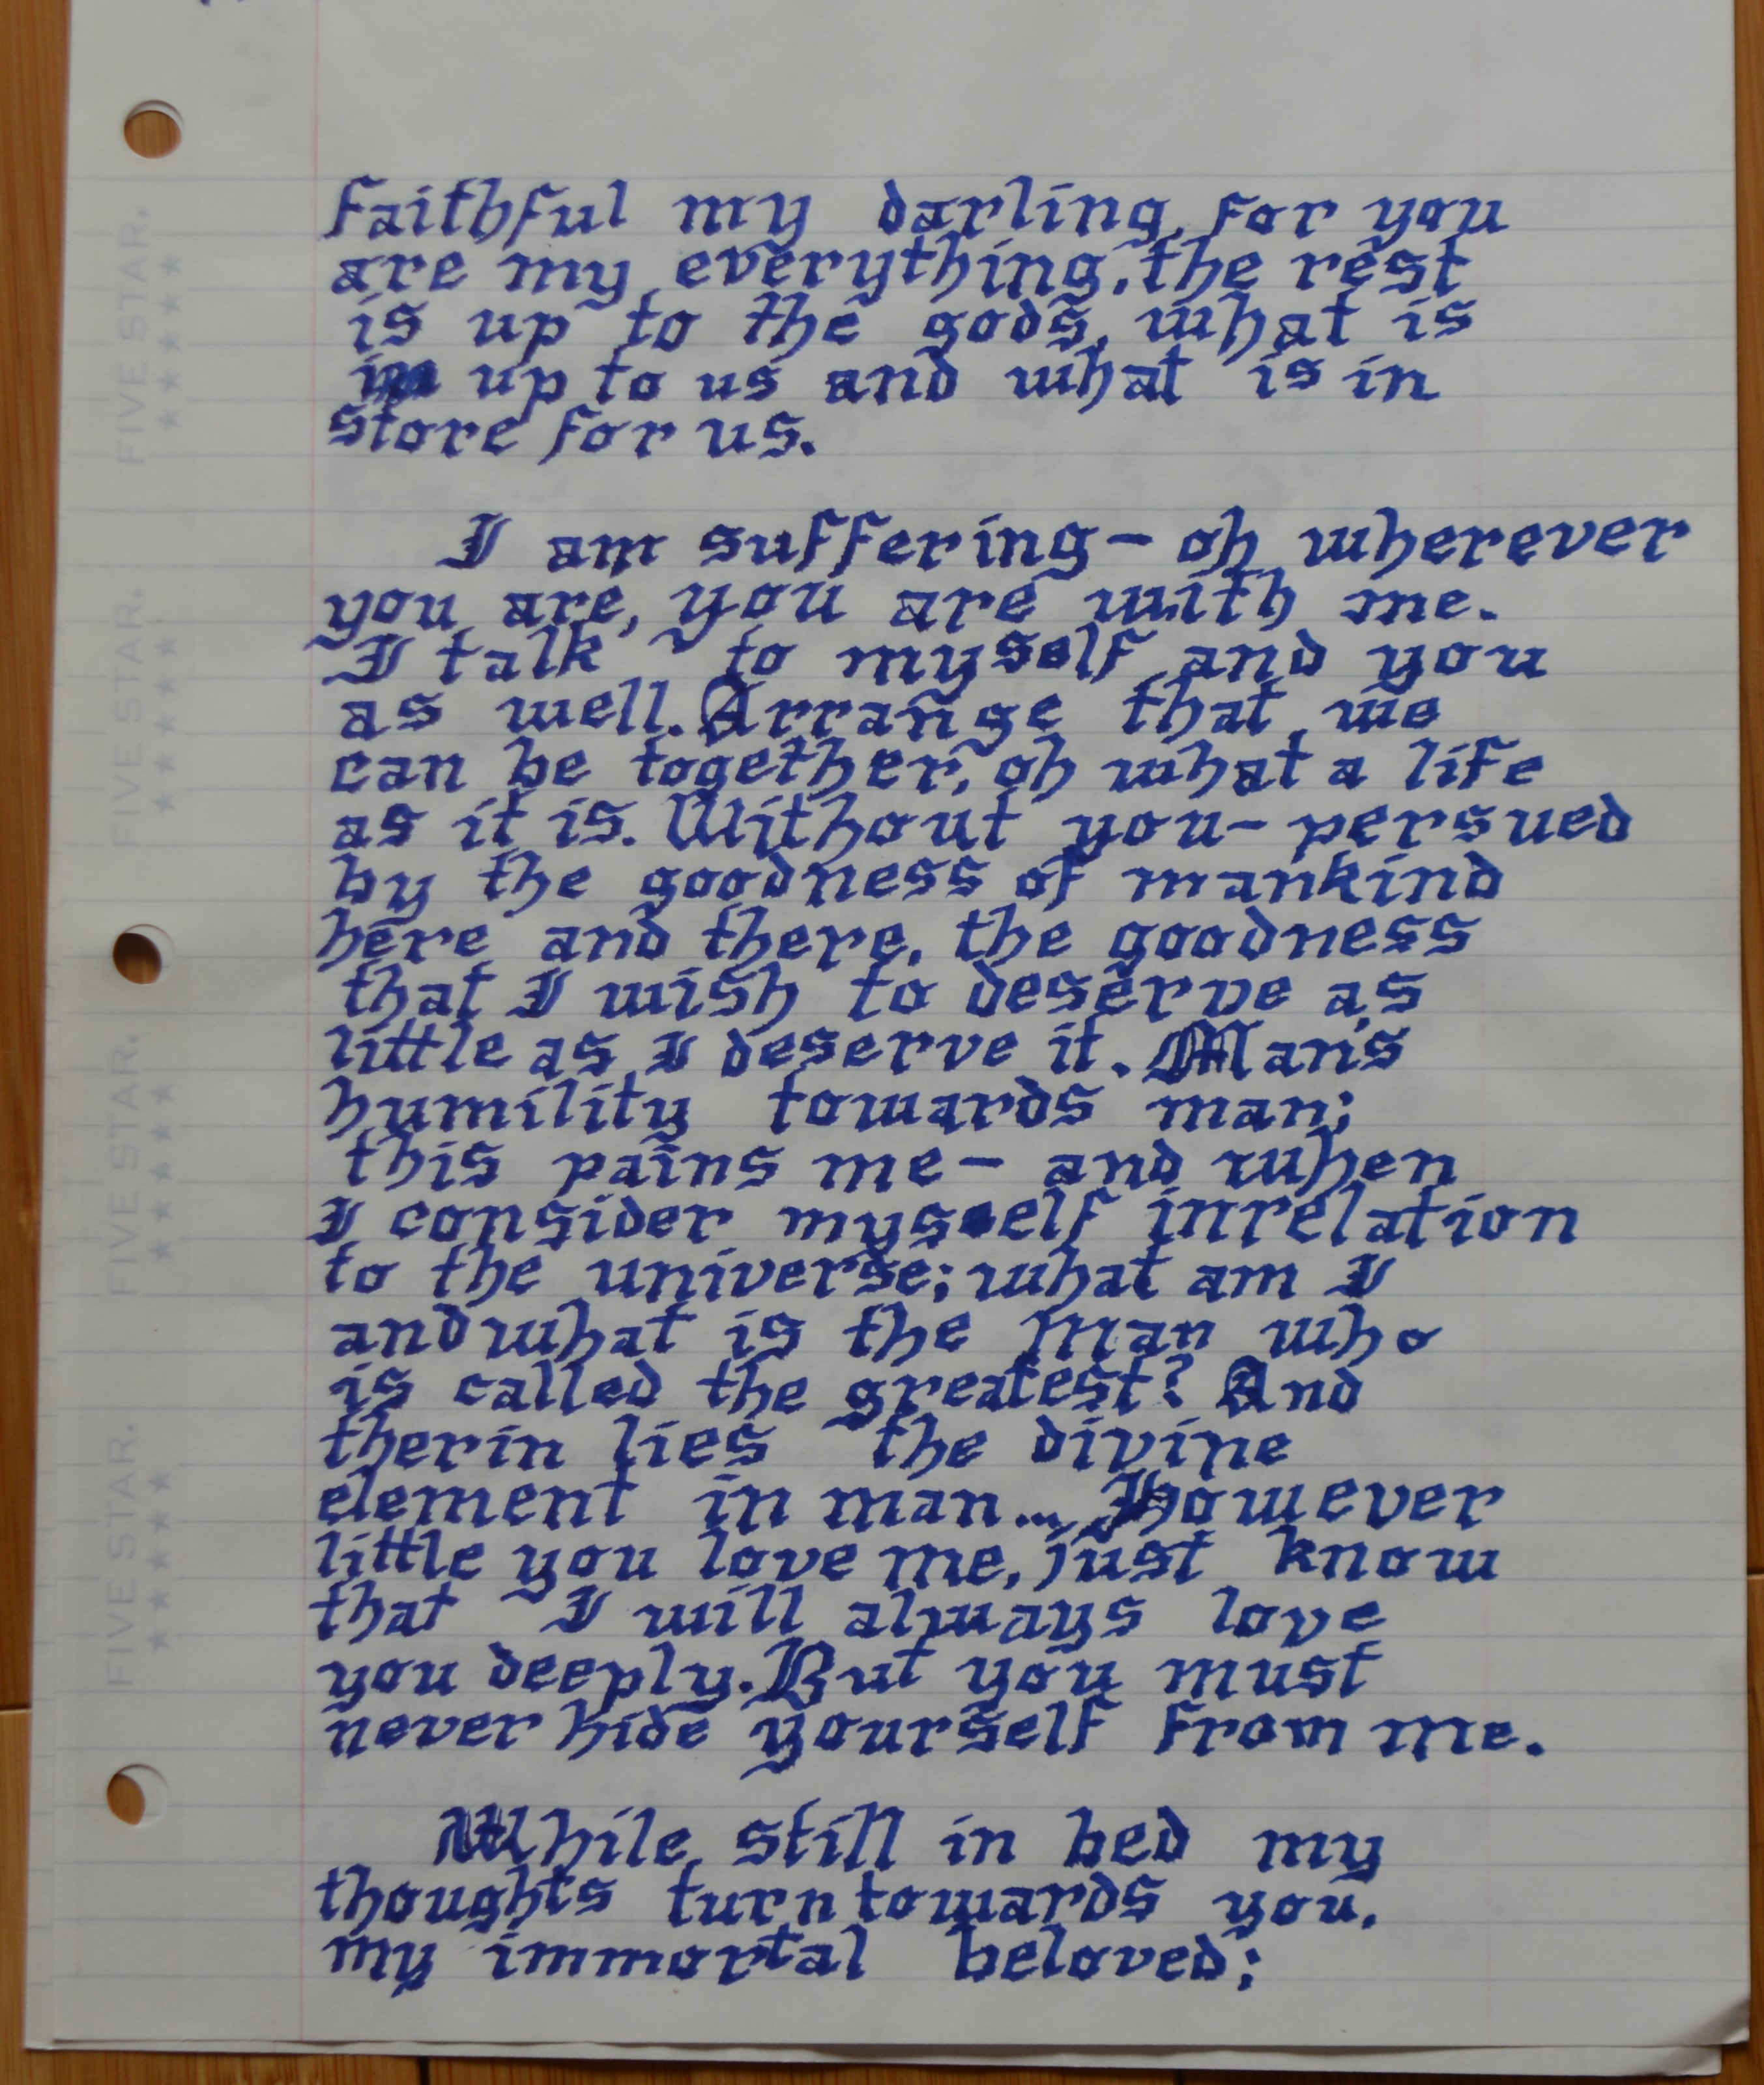 faithful my darling, for you
are my everything, the rest
is up to the gods, what is
in up to us and what is in
store for us.
I am suffering - oh wherever
you are, you are with me.
I talk to myself and you
as well. Arrange that we
can be together, oh what a life
as it is. Without you - persued
by the goodness of mankind
here and there, the goodness
that I wish to deserve as
little as I deserve it. Man's
humility towards man;
this pains me - and when
I consider myself inrelation
to the universe; what am I
and what is the Man who
is called the greatest? And
therin lies the divine
element in man... However
little you love me, just know
that I will always love
you deeply. But you must
never hide yourself from me.
While still in bed my
thoughts turn towards you,
my immortal beloved;
FIVE STAR.
FIVE STAR.
FIVE STAR.
FIVE STAR.